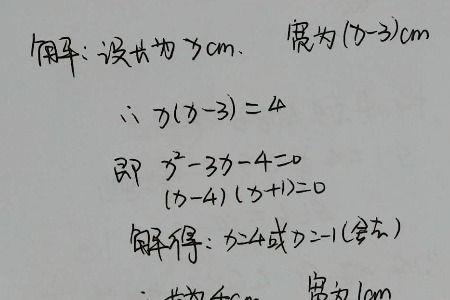 解:设长为xcm. 宽为(x-3)cm
∴ x(x-3)=4
即 x²-3x-4=0
(x-4)(x+1)=0
解得:x=4或x=-1(舍去)
∴长为4cm 宽为1cm